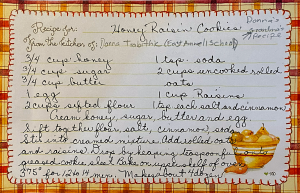 Recipe for: Honey Raisin Cookies
Donna's
Grandma's
Recipe
From the kitchen of: Donna (East Annell School)
3/4 cup honey 1 tsp. soda
3/4 cup sugar 2 cups uncooked rolled
3/4 cup butter oats
1 egg 1 cup Raisins
2 cups sifted flour 1 tsp each salt and cinnamon
Cream honey, sugar, butter and egg.
Sift together flour, salt, cinnamon, soda.
Stir into creamed mixture. Add rolled oats
and raisins. Drop by heaping teaspoonful on
greased cookie sheet. Bake on middle shelf of oven
375° for 12 to 14 min. Makes about 4 dozen